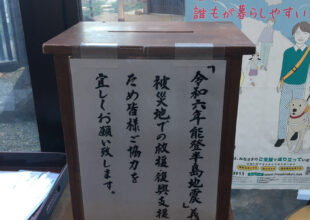 「令和六年能登半島地震」義
被災地での救援・復興支援
ため皆様ご協力を
宜しくお願い致します。
誰もが暮らしやすい